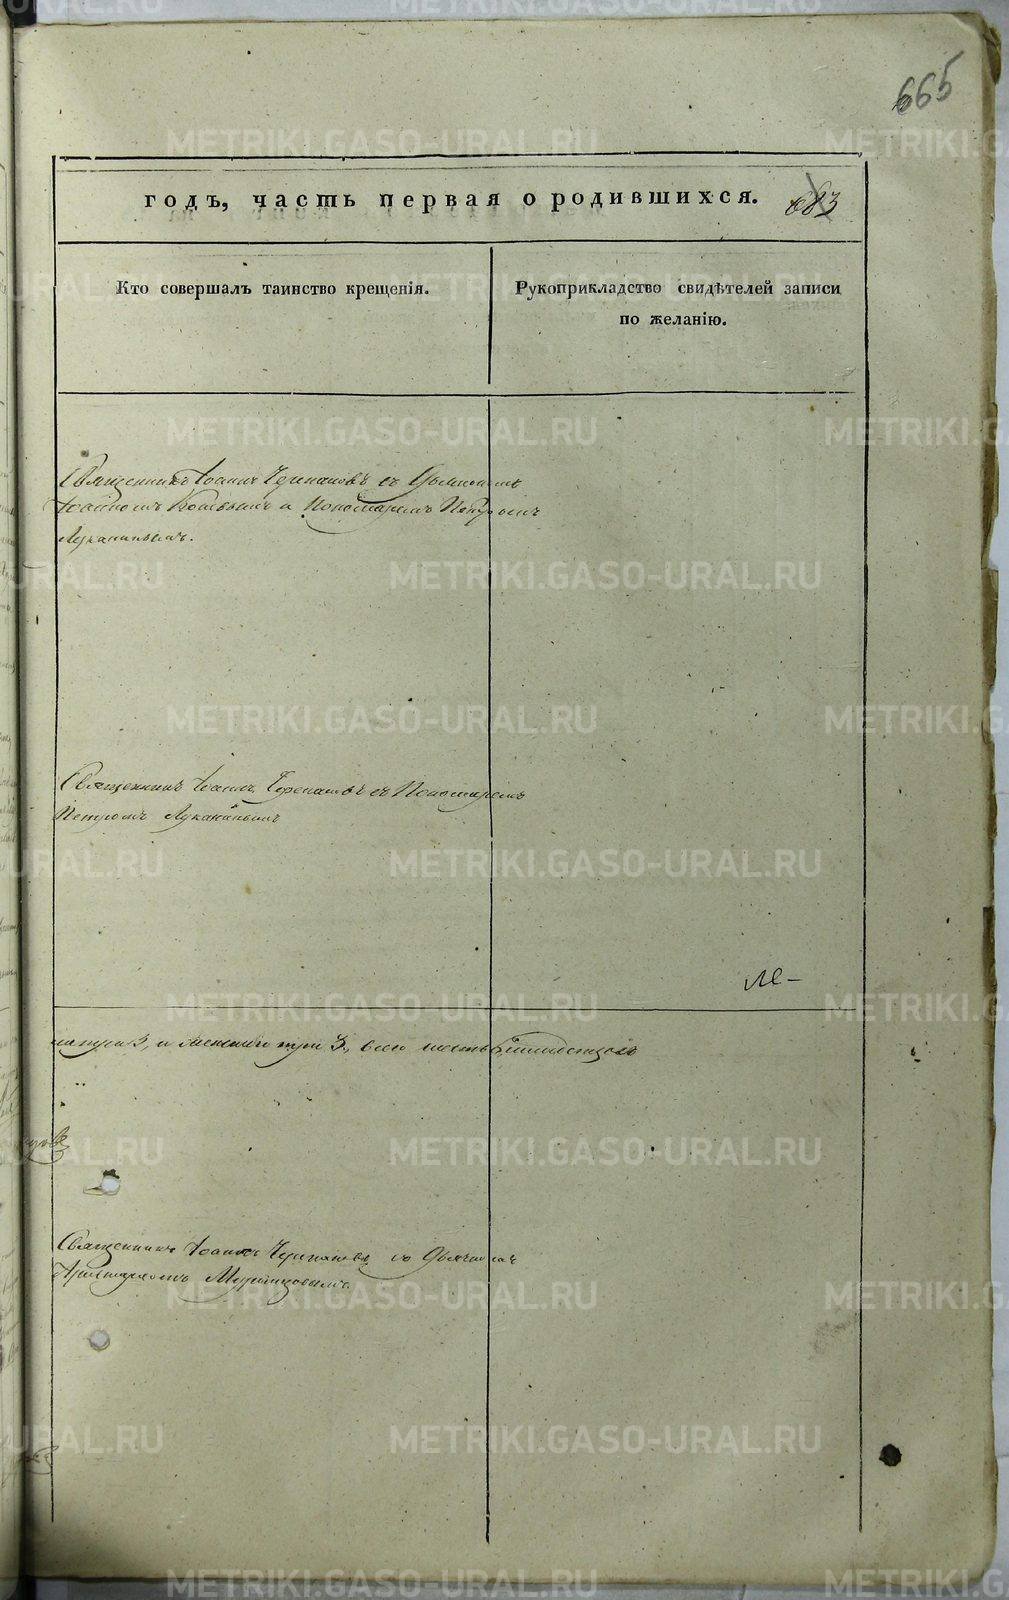 665
годъ, часть первая о родившихся. 683
Кто совершалъ таинство крещенія.
Рукоприкладство свидѣтелей записи
по желанію.
Священникъ Іоаннъ Черепановъ съ
Іоанномъ и Пономаремъ Петромъ
Луканинымъ.
Священникъ Іоаннъ Черепановъ съ Пономаремъ
Петромъ Луканинымъ
три 3, и женска три 3, всего шесть
Священникъ Іоаннъ Черепановъ со Дьячкомъ
METRIKI.GASO-URAL.RU